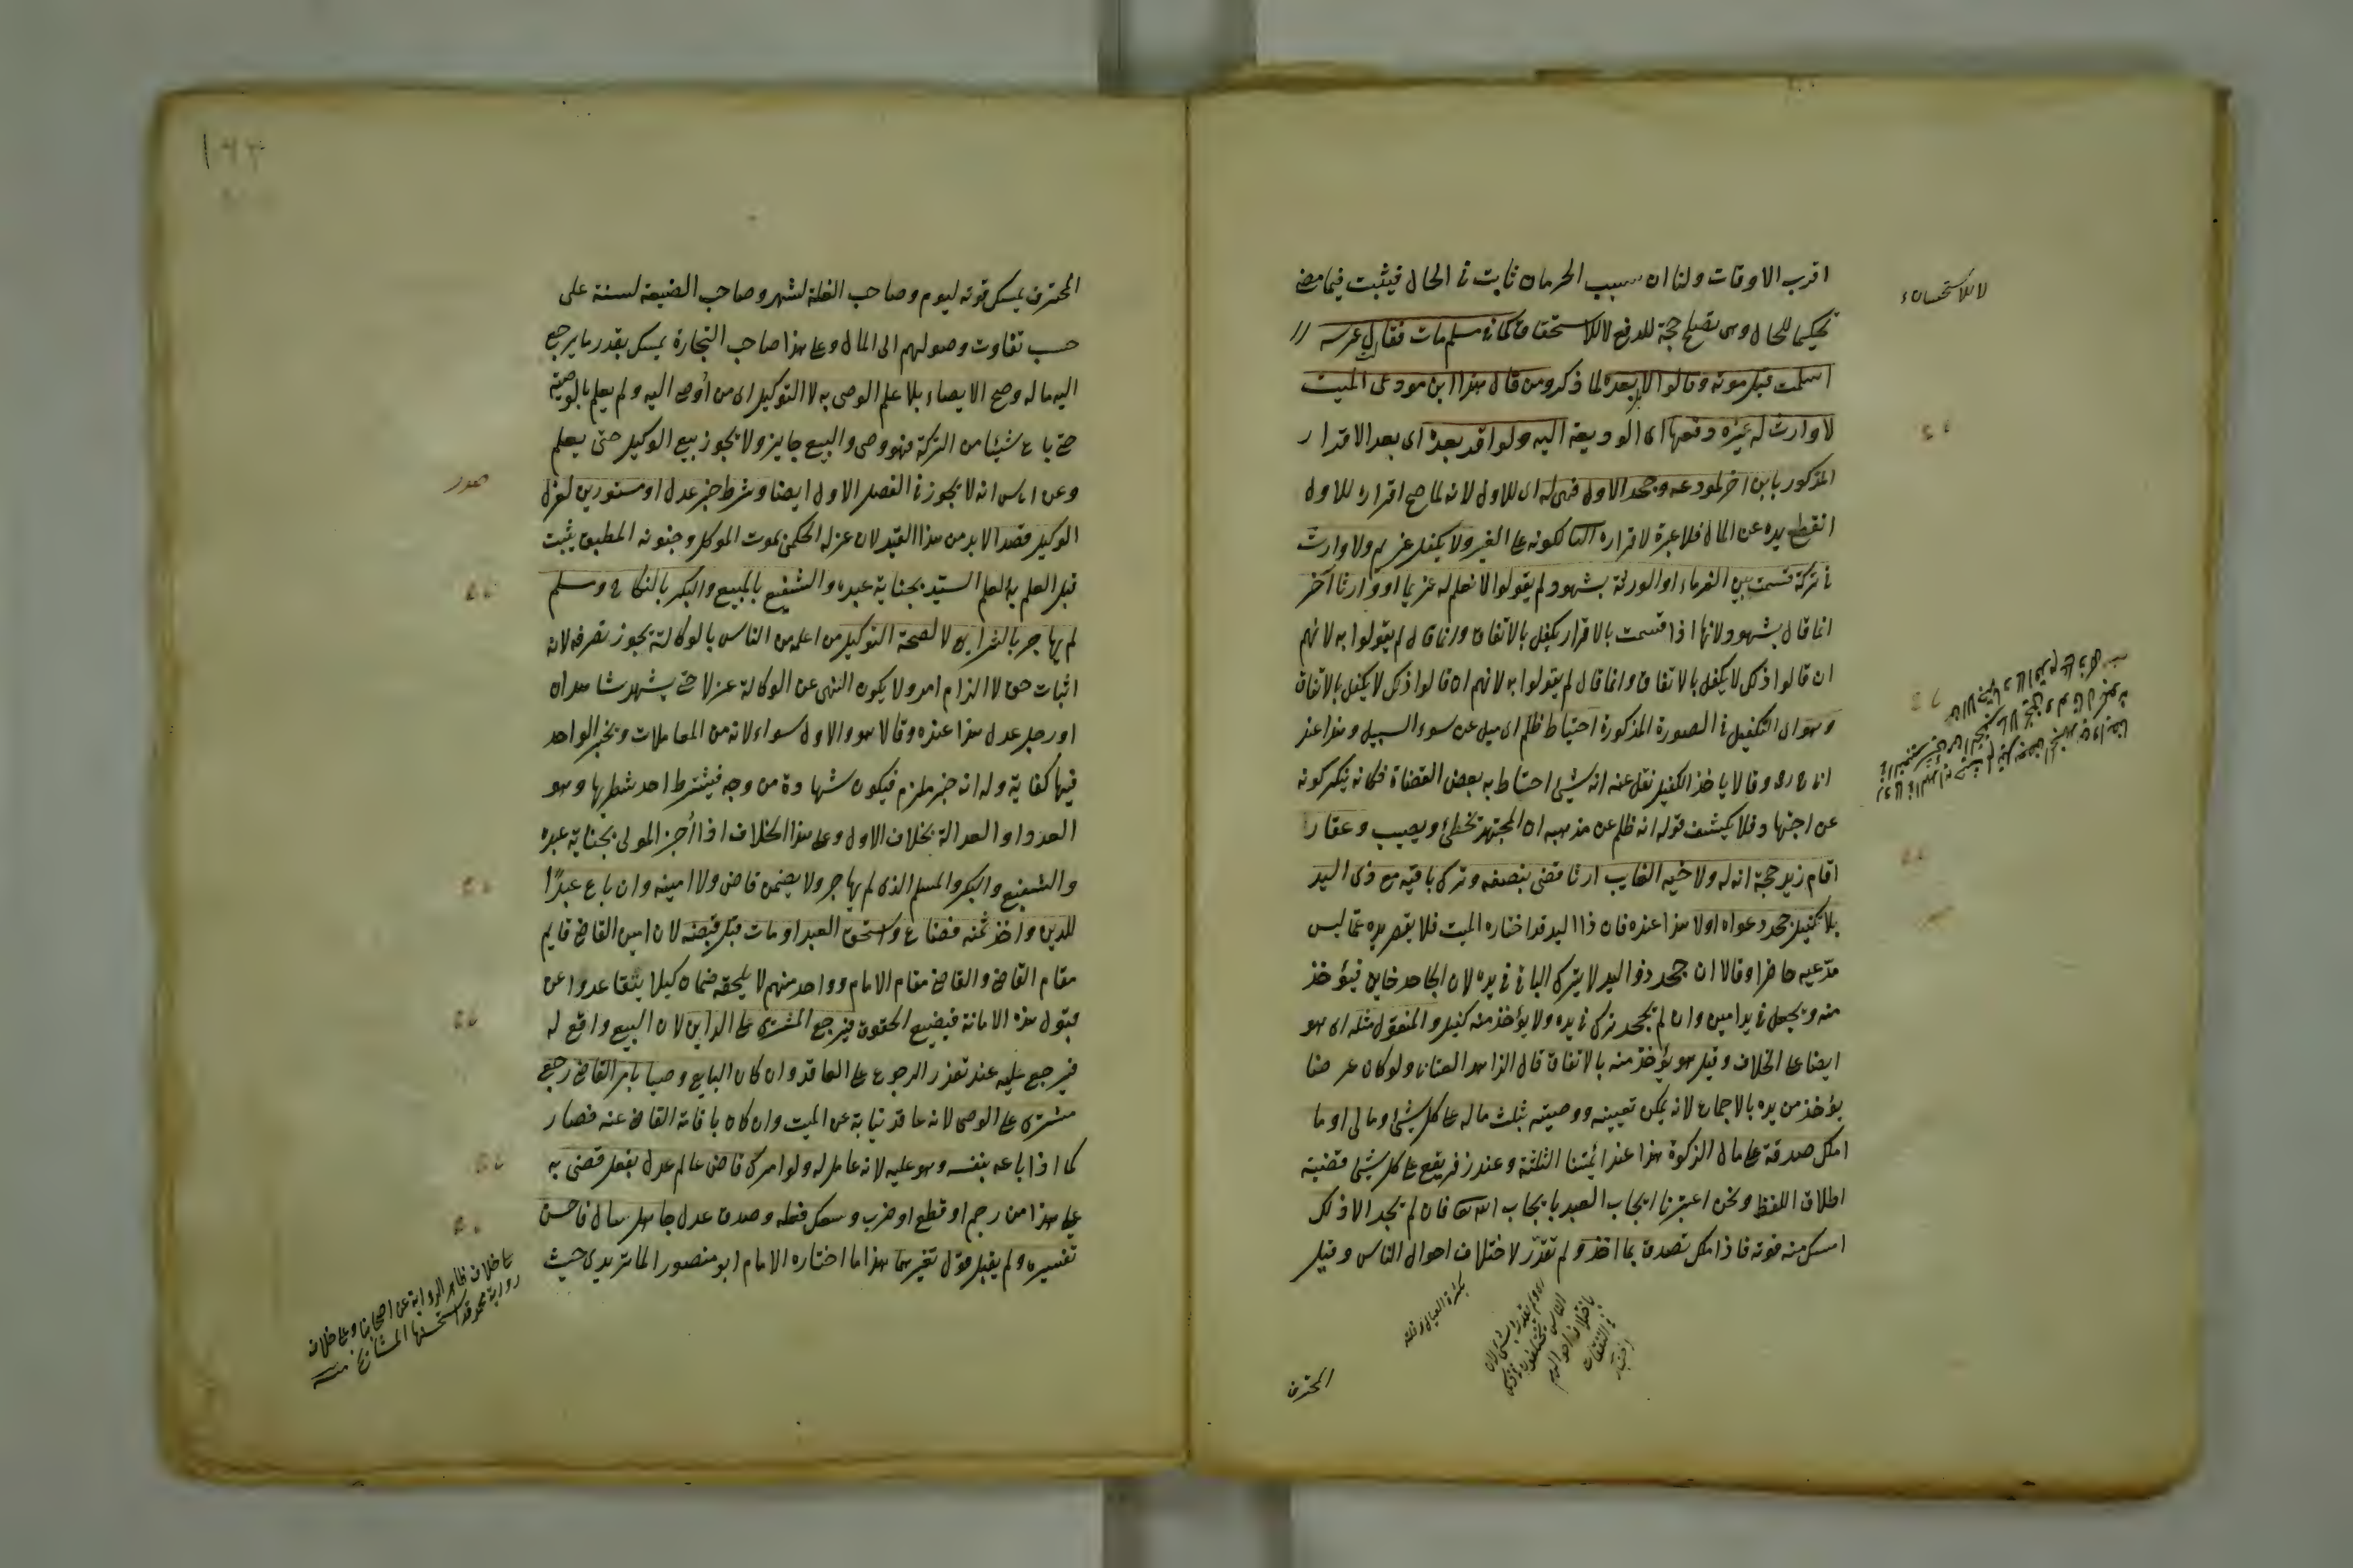 اقرب الاوقات ولنا ان سبب الحرمان ثابت فى الحال فيثبت فيما مضى
تحكيما للحال وهى تصلح حجة للدفع لا للاستحقاق كما فى مسلم مات فقال عرسه
اسلمت قبل موته وقالوا لا بل بعده لما ذكر ومن قال هذا ابن مودعى الميت
لا وارث له غيره دفعها اى الوديعة اليه ولو اقر بعده اى بعد الاقرار
المذكور بابن اخر لمودعه وجحد الاول فهى له اى للاول لانه لما صح اقراره للاول
انقطع يده عن المال فلا عبرة لاقراره الثانى لكونه على الغير ولا يكفل غريم ولا وارث
فى تركة قسمت بين الغرماء او الورثة بشهود لم يقولوا لا نعلم له غريما او وارثا آخر
انما قال بشهود لانها اذا قسمت بالاقرار يكفل بالاتفاق وانما قال لم يقولوا به لانهم
ان قالوا ذلك لا يكفل بالاتفاق وانما قال لم يقولوا به لانهم ان قالوا ذلك لا يكفل بالاتفاق
وهو اى التكفيل فى الصورة المذكورة احتياط ظلم اى ميل عن سواء السبيل وهذا عند
وقالا ياخذ الكفيل نقل عنه انه شئ احتاط به بعض القضاة
عن اجتهاد فلا يكشف قوله انه ظلم عن مذهبه ان المجتهد يخطئ ويصيب وعقار
اقام زيد حجة انه له ولاخيه الغايب ارثا قضى بنصفه وترك باقيه مع ذى اليد
بلا تكفيل جحد دعواه اولا هذا عنده فان ذا اليد قد اختاره الميت فلا يقصر يده عما ليس
مدعيه حاضرا وقالا ان جحد ذو اليد لا يترك الباقى فى يده لان الجاحد خاين فيؤخذ
منه ويجعل فى يد امين وان لم يجحد ترك فى يده ولا يؤخذ منه كفيل والمنقول مثله اى هو
ايضا على الخلاف وقيل هو يؤخذ منه بالاتفاق قال الزاهد العتابى ولو كان عرضا
يؤخذ من يده بالاجماع لانه يمكن تعيينه ووصيته بثلث ماله على كل شئ ومالى او ما
املك صدقة على مال الزكوة هذا عند ائمتنا الثلثة وعند زفر يقع على كل شئ قضية
اطلاق اللفظ ونحن اعتبرنا ايجاب العبد بايجاب الله تعالى فان لم يجد الا ذلك
امسك منه قوته فاذا ملك تصدق بما اخذ ولم تقدر لاختلاف احوال الناس وقيل
المحترف
المحترف يمسك قوته ليوم وصاحب الغلة لشهر وصاحب الضيعة لسنة على
حسب تفاوت وصولهم الى المال وعلى هذا صاحب التجارة يمسك بقدر ما يرجع
اليه ماله وصح الايصاء بلا علم الوصى به لا التوكيل اى من أوصى اليه ولم يعلم بالوصية
حتى باع شيئا من التركة فهو وصى والبيع جايز ولا يجوز بيع الوكيل حتى يعلم
وعن انه لا يجوز فى الفصل الاول ايضا وشرط خبر عدل او مستورين لعزل
الوكيل قصدا لابد من هذا القيد لان عزله الحكمى بموت الموكل وجنونه المطبق يثبت
قبل العلم به لعلم السيد بجناية عبده والشفيع بالمبيع والبكر بالنكاح ومسلم
لم يهاجر بالشرايع لا لصحة التوكيل من اعلمه من الناس بالوكالة يجوز تصرفه لانه
اثبات حق لا الزام امر ولا يكون النهى عن الوكالة عزلا حتى يشهد شاهدان
او رجل عدل هذا عنده وقالا هو والاول سواء لانه من المعاملات وبخبر الواحد
فيها كفاية وله انه خبر ملزم فيكون شهادة من وجه فيشترط احد شطريها وهو
العدد او العدالة بخلاف الاول وعلى هذا الخلاف اذا أخبر المولى بجناية عبده
والشفيع والبكر والمسلم الذى لم يهاجر ولا يضمن قاض ولا امينه وان باع عبدًا
للدين واخذ ثمنه فضاع واستحق العبد او مات قبل قبضه لان امين القاضى قايم
مقام القاضى والقاضى مقام الامام وواحد منهم لا يلحقه ضمان كيلا يتقاعدوا عن
قبول هذه الامانة فيضيع الحقوق فيرجع المشترى على الداين لان البيع واقع له
فيرجع عليه عند تعذر الرجوع على العاقد وان كان البايع وصيا بامر القاضى رجع
مشترى على الوصى لانه عاقد نيابة عن الميت وان كان باقامة القاضى عنه فصار
كما اذا باعه بنفسه وهو عليه لانه عامل له ولو امرك قاض عالم عدل بفعل قضى به
على هذا من رجم او قطع او ضرب وسعك فعله وصدق عدل جاهل سال فاحسن
تفسيره ولم يقبل قول غيرهما هذا ما اختاره الامام ابو منصور الماتريدى حيث